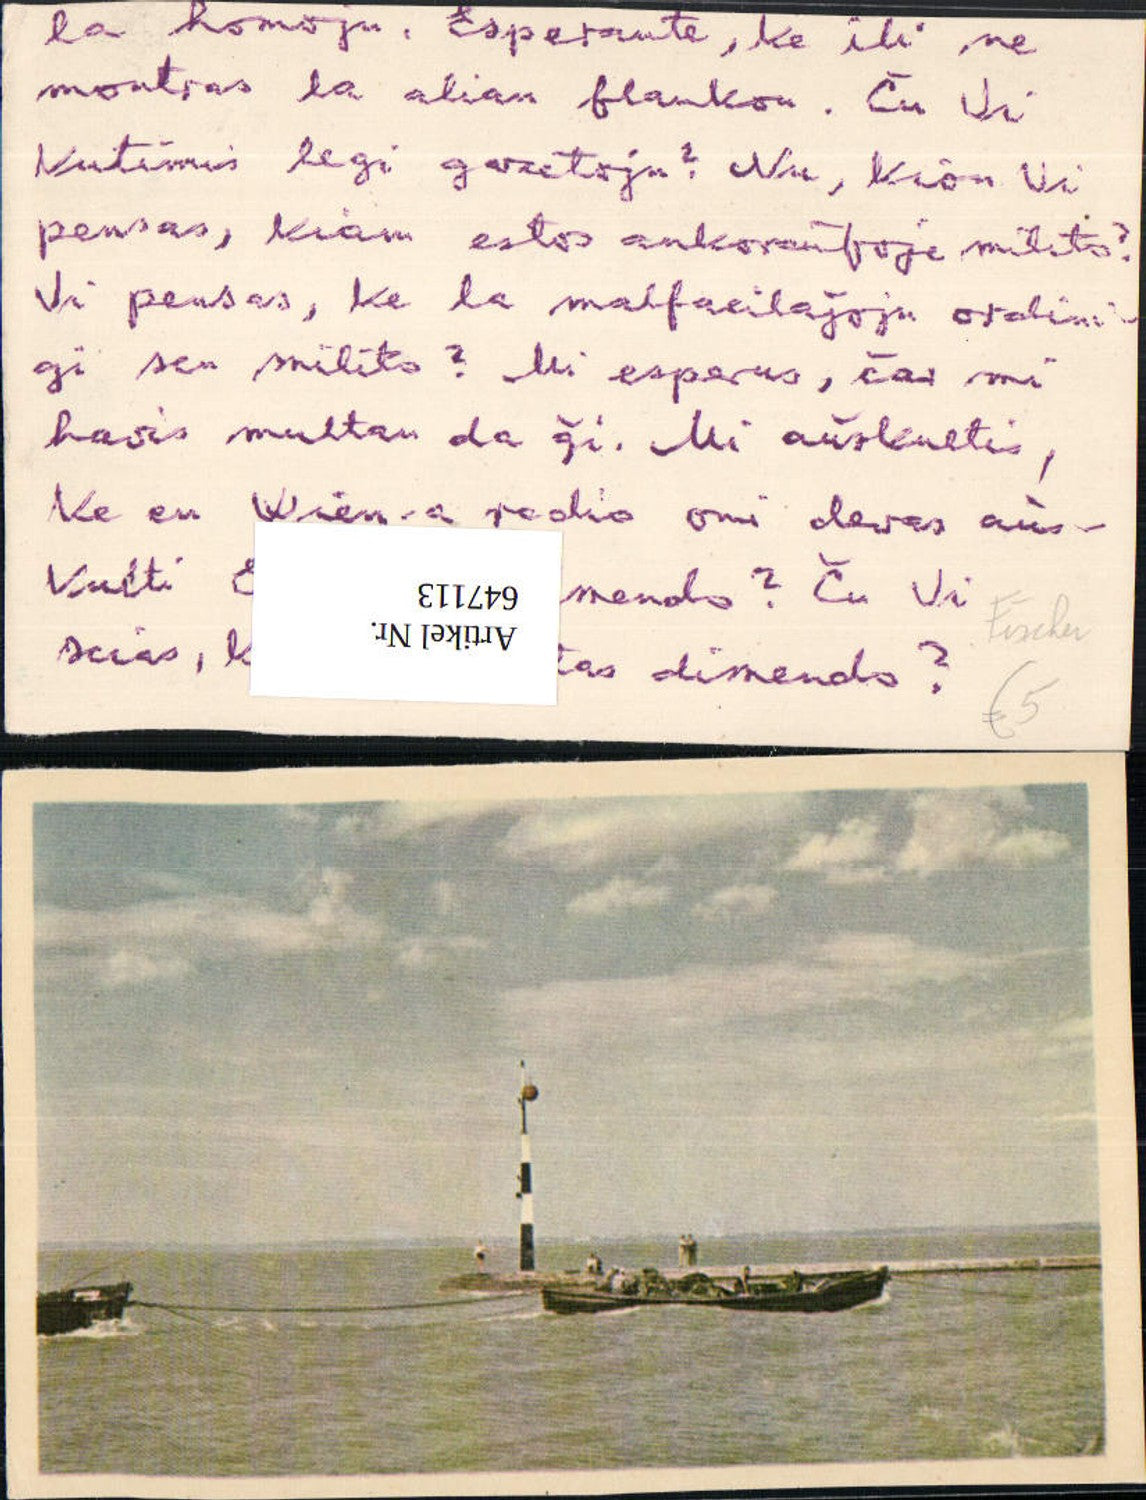 la homoju. Esperante, ke ili ne
montras la alian flankon. Ĉu Vi
kutimis legi gazetoju? Nu, kion Vi
pensas, kiam estos ankoraŭfoje milito?
Vi pensas, ke la malfacilaĵoju ordini-
gi sen milito? Mi esperus, ĉar mi
havis multan da ĝi. Mi aŭskultis,
ke en Wien-a radio oni devas aŭs-
kulti mendo? Ĉu Vi
scias, tas dimendo?
Artikel Nr.
647113
Fischer
€5